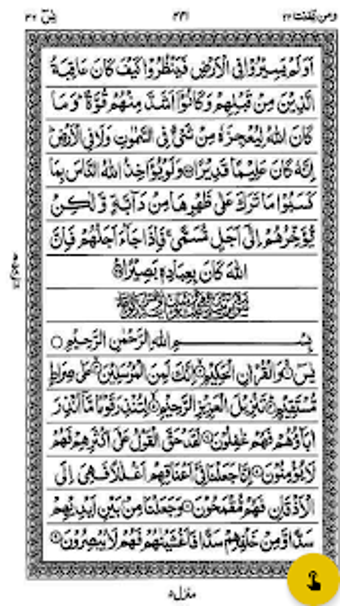 ومن يقنت ٢٢ ٤٤١ يٰسٓ ٣٦
اَوَلَمْ يَسِيْرُوْا فِي الْاَرْضِ فَيَنْظُرُوْا كَيْفَ كَانَ عَاقِبَةُ
الَّذِيْنَ مِنْ قَبْلِهِمْ وَكَانُوْٓا اَشَدَّ مِنْهُمْ قُوَّةً ؕ وَمَا
كَانَ اللّٰهُ لِيُعْجِزَهٗ مِنْ شَىْءٍ فِي السَّمٰوٰتِ وَلَا فِي الْاَرْضِ ؕ
اِنَّهٗ كَانَ عَلِيْمًا قَدِيْرًا ۞ وَلَوْ يُؤَاخِذُ اللّٰهُ النَّاسَ بِمَا
كَسَبُوْا مَا تَرَكَ عَلٰى ظَهْرِهَا مِنْ دَآبَّةٍ وَّلٰكِنْ
يُّؤَخِّرُهُمْ اِلٰٓى اَجَلٍ مُّسَمًّى ۚ فَاِذَا جَآءَ اَجَلُهُمْ فَاِنَّ
اللّٰهَ كَانَ بِعِبَادِهٖ بَصِيْرًا ۞
بِسْمِ اللّٰهِ الرَّحْمٰنِ الرَّحِيْمِ ۞
يٰسٓ ۞ وَالْقُرْاٰنِ الْحَكِيْمِ ۞ اِنَّكَ لَمِنَ الْمُرْسَلِيْنَ ۞ عَلٰى صِرَاطٍ
مُّسْتَقِيْمٍ ۞ تَنْزِيْلَ الْعَزِيْزِ الرَّحِيْمِ ۞ لِتُنْذِرَ قَوْمًا مَّآ اُنْذِرَ
اٰبَآؤُهُمْ فَهُمْ غٰفِلُوْنَ ۞ لَقَدْ حَقَّ الْقَوْلُ عَلٰٓى اَكْثَرِهِمْ فَهُمْ
لَا يُؤْمِنُوْنَ ۞ اِنَّا جَعَلْنَا فِيْٓ اَعْنَاقِهِمْ اَغْلٰلًا فَهِىَ اِلَى
الْاَذْقَانِ فَهُمْ مُّقْمَحُوْنَ ۞ وَجَعَلْنَا مِنْۢ بَيْنِ اَيْدِيْهِمْ
سَدًّا وَّمِنْ خَلْفِهِمْ سَدًّا فَاَغْشَيْنٰهُمْ فَهُمْ لَا يُبْصِرُوْنَ ۞
منزل ٥